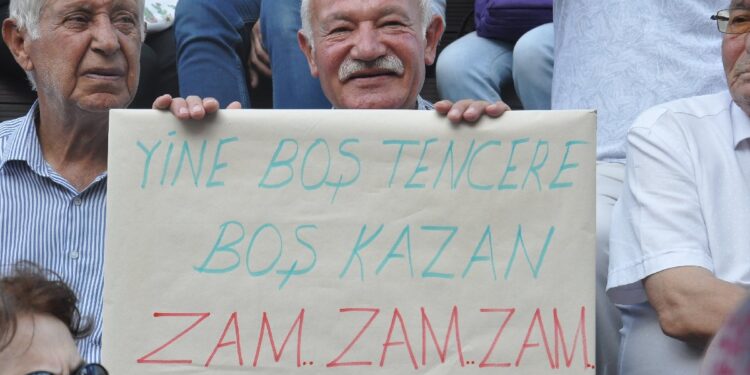 YİNE BOŞ TENCERE
BOŞ KAZAN
ZAM.. ZAM..ZAM..